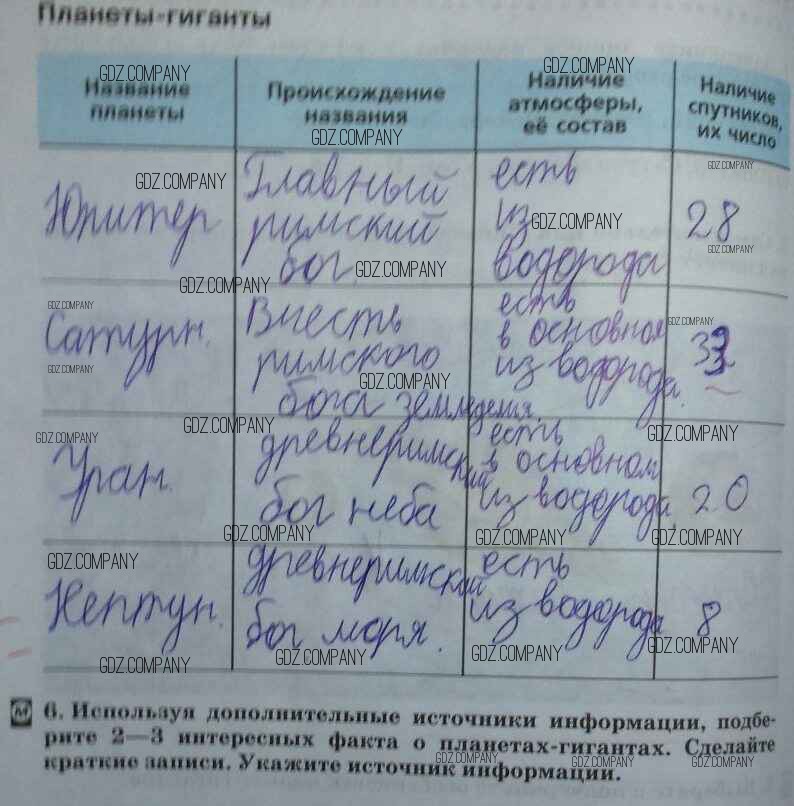 Планеты-гиганты
Название планеты
Происхождение названия
Наличие атмосферы, её состав
Наличие спутников, их число
Юпитер
Главный
римский
бог.
есть
из
водорода
28
Сатурн.
В честь
римского
бога земледелия.
есть
в основном
из водорода.
Уран.
древнеримский
бог неба
есть
в основном
из водорода
20
Нептун.
древнеримский
бог моря.
есть
из водорода
8
6. Используя дополнительные источники информации, подбе-
рите 2—3 интересных факта о планетах-гигантах. Сделайте
краткие записи. Укажите источник информации.
GDZ.COMPANY